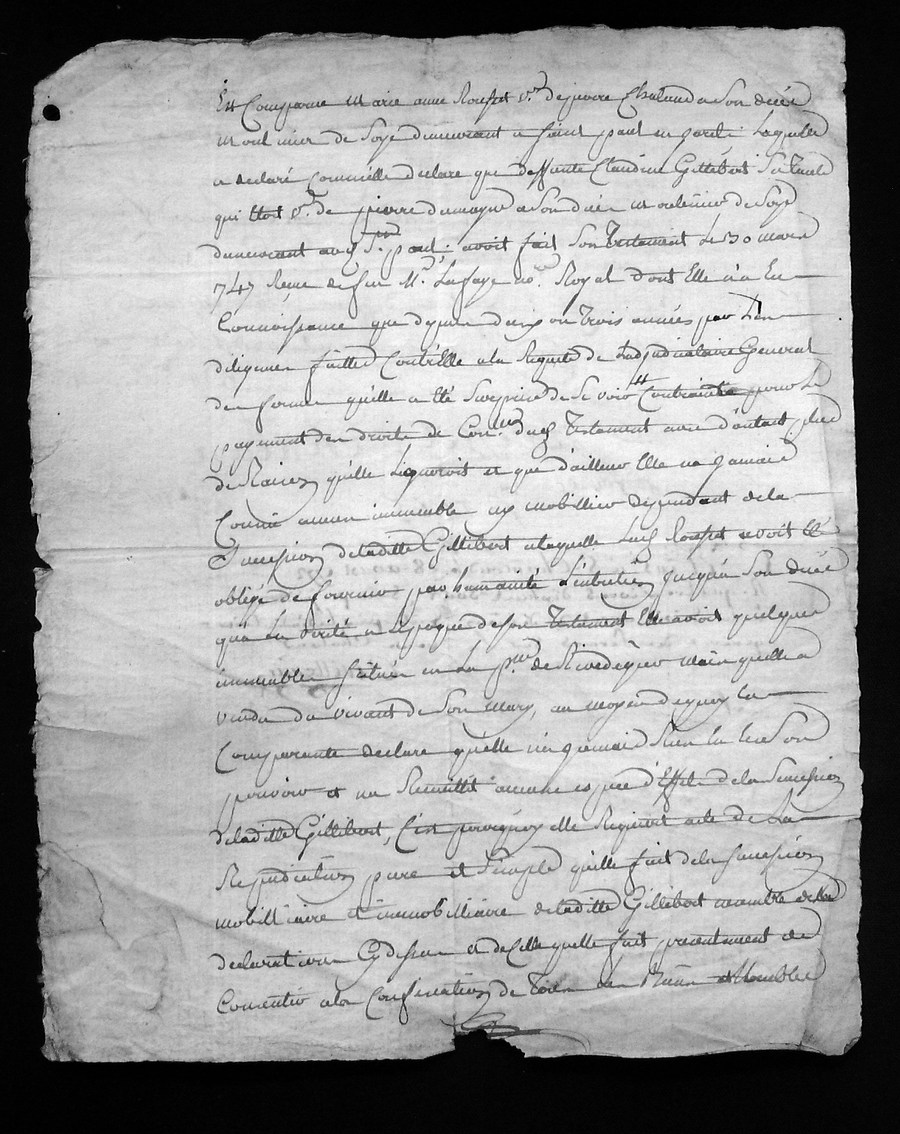 Est Comparüe Marie anne Rouset v.ve de pierre Chaland a Son décés
Moulinier de Soye demeurant a Saint paul en jarêt. Laquelle
a declaré Comm'elle declare que deffunte Claudine Gillibert Sa Tante
qui Etoit v.ve de pierre dumagny a Son décés Moulinier de Soye
demeurant aud S.t paul. avoit fait Son Testament Le 30 mars
1747 Reçu de feu M.e Lafaye no.re Royal dont Elle n'a Eu
Connoissance que depuis deux ou Trois années par Les
diligences faittes Contr'Elle a la Requete de Ladjudicataire General
des fermes quelle a été Surprise de Se voir Contrainte pour Le
payement des droits de Con.lle dud Testament avec d'autant plus
de Raison qu'elle L'ignoroit et que d'ailleurs Elle na jamais
Connu aucun immeuble ny mobillier dependant de la
Succession de laditte Gillibert a laquelle Lad Rouset avoit été
obligé de fournir par humanité L'entretien jusqu'a Son décés
qu'a La verité a Lepoque de Son Testament Elle avoit quelques
immeubles Situés en La p.sse de Rivedegier Mais quelle a
vendu du vivant de Son Mary, au moyen de quoy La
Comparante declare quelle n'a jamais Rien Eu En Son
pouvoir et na Recueillit aucune espece d'Effets de la Succession
de laditte Gillibert, C'est pourquoy elle Requiert acte de La
Repudiation pure et Simple qu'elle fait de la Succession
mobilliaire et immobilliaire de laditte Gillibert ensemble de Sa
declaration Cy dessus et de Celle quelle fait presentement de
Consentir a la Confiscation de Tous Les Biens et Meubles